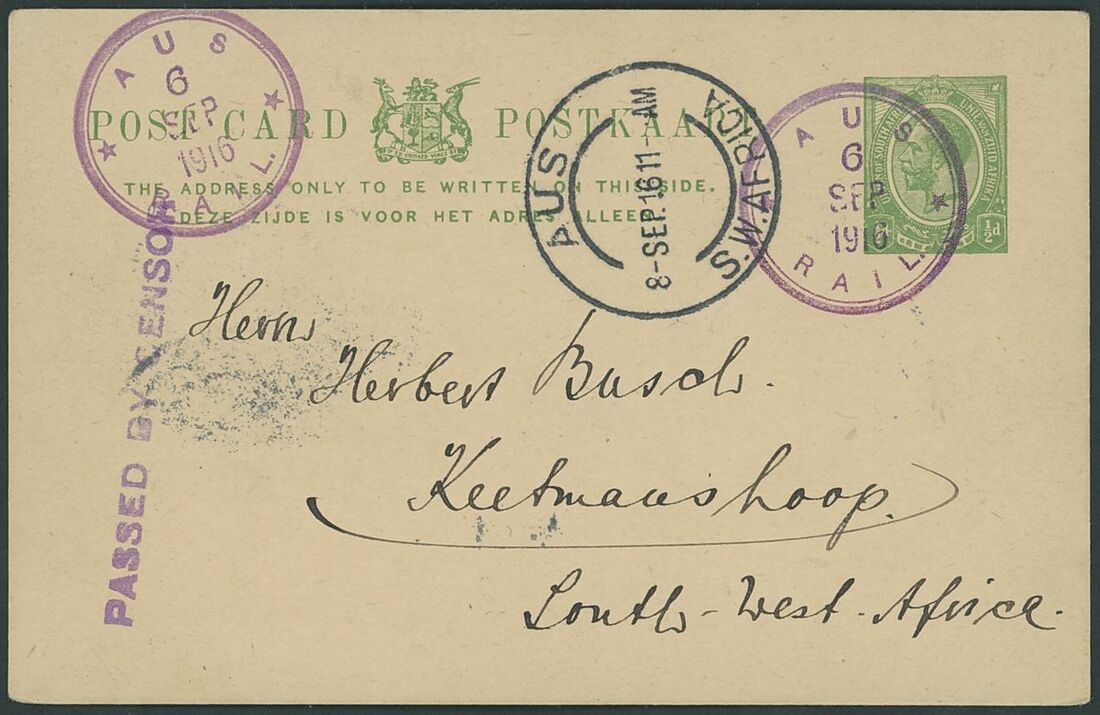 AUS
6
SEP
1916
RAIL.
POST CARD POSTKAART
THE ADDRESS ONLY TO BE WRITTEN ON THIS SIDE.
DEZE ZIJDE IS VOOR HET ADRES ALLEEN
AUS
8-SEP.16 11-AM
S.W.AFRICA
AUS
6
SEP
1916
RAIL.
UNIE VAN ZUID AFRIKA
½d
PASSED BY CENSOR
Herrn
Herbert Busch.
Keetmanshoop.
South-West-Africa.